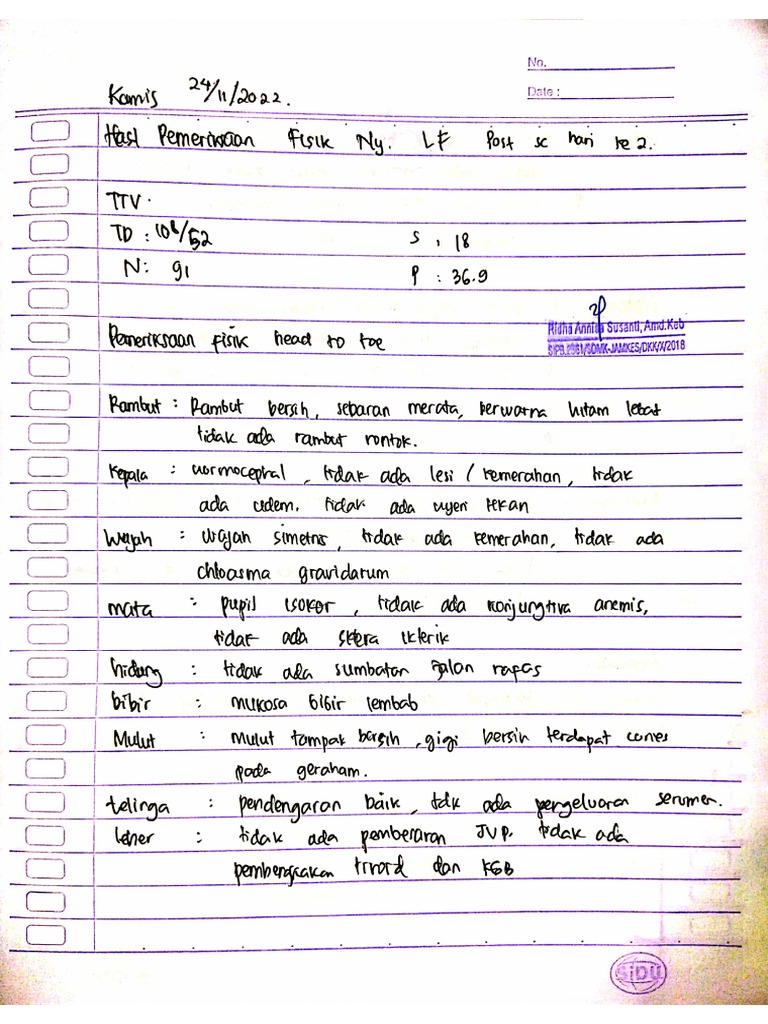 No.
Date :
Kamis 24/11/2022.
Hasil Pemeriksaan Fisik Ny. LF Post sc hari ke 2.
TTV.
TD : 108/52 S : 18
N : 91 P : 36.9
Ridha Annisa Susanti, Amd.Keb
Pemeriksaan fisik head to toe
SIPB.2981/SDMK-JAMKES/DKK/X/2018
Rambut : Rambut bersih, sebaran merata, berwarna hitam lebat
tidak ada rambut rontok.
Kepala : normocephal, tidak ada lesi / kemerahan, tidak
ada udem. tidak ada nyeri tekan
Wajah : wajah simetris, tidak ada kemerahan, tidak ada
chloasma gravidarum
mata : pupil isokor, tidak ada konjungtiva anemis,
tidak ada sklera ikterik
hidung : tidak ada sumbatan jalan napas
bibir : mukosa bibir lembab
Mulut : mulut tampak bersih, gigi bersih terdapat caries
pada geraham.
telinga : pendengaran baik, tdk ada pengeluaran serumen.
leher : tidak ada pembesaran JVP. tidak ada
pembengkakan tiroid dan KGB
SiDU